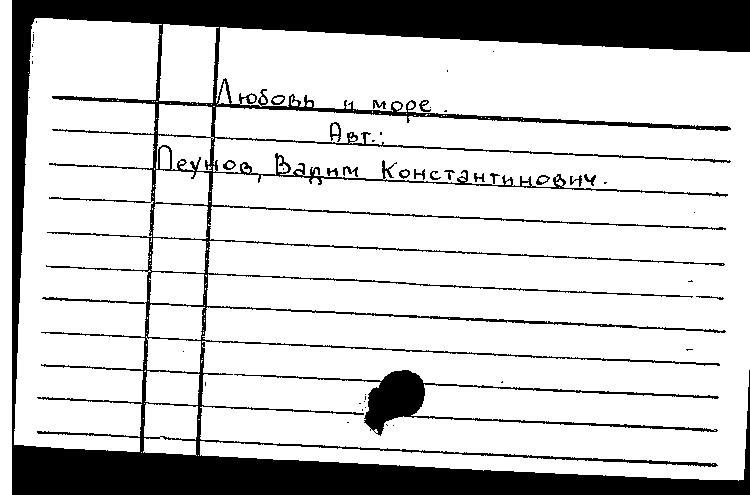 Любовь и море.
Авт.:
Пеунов, Вадим Константинович.